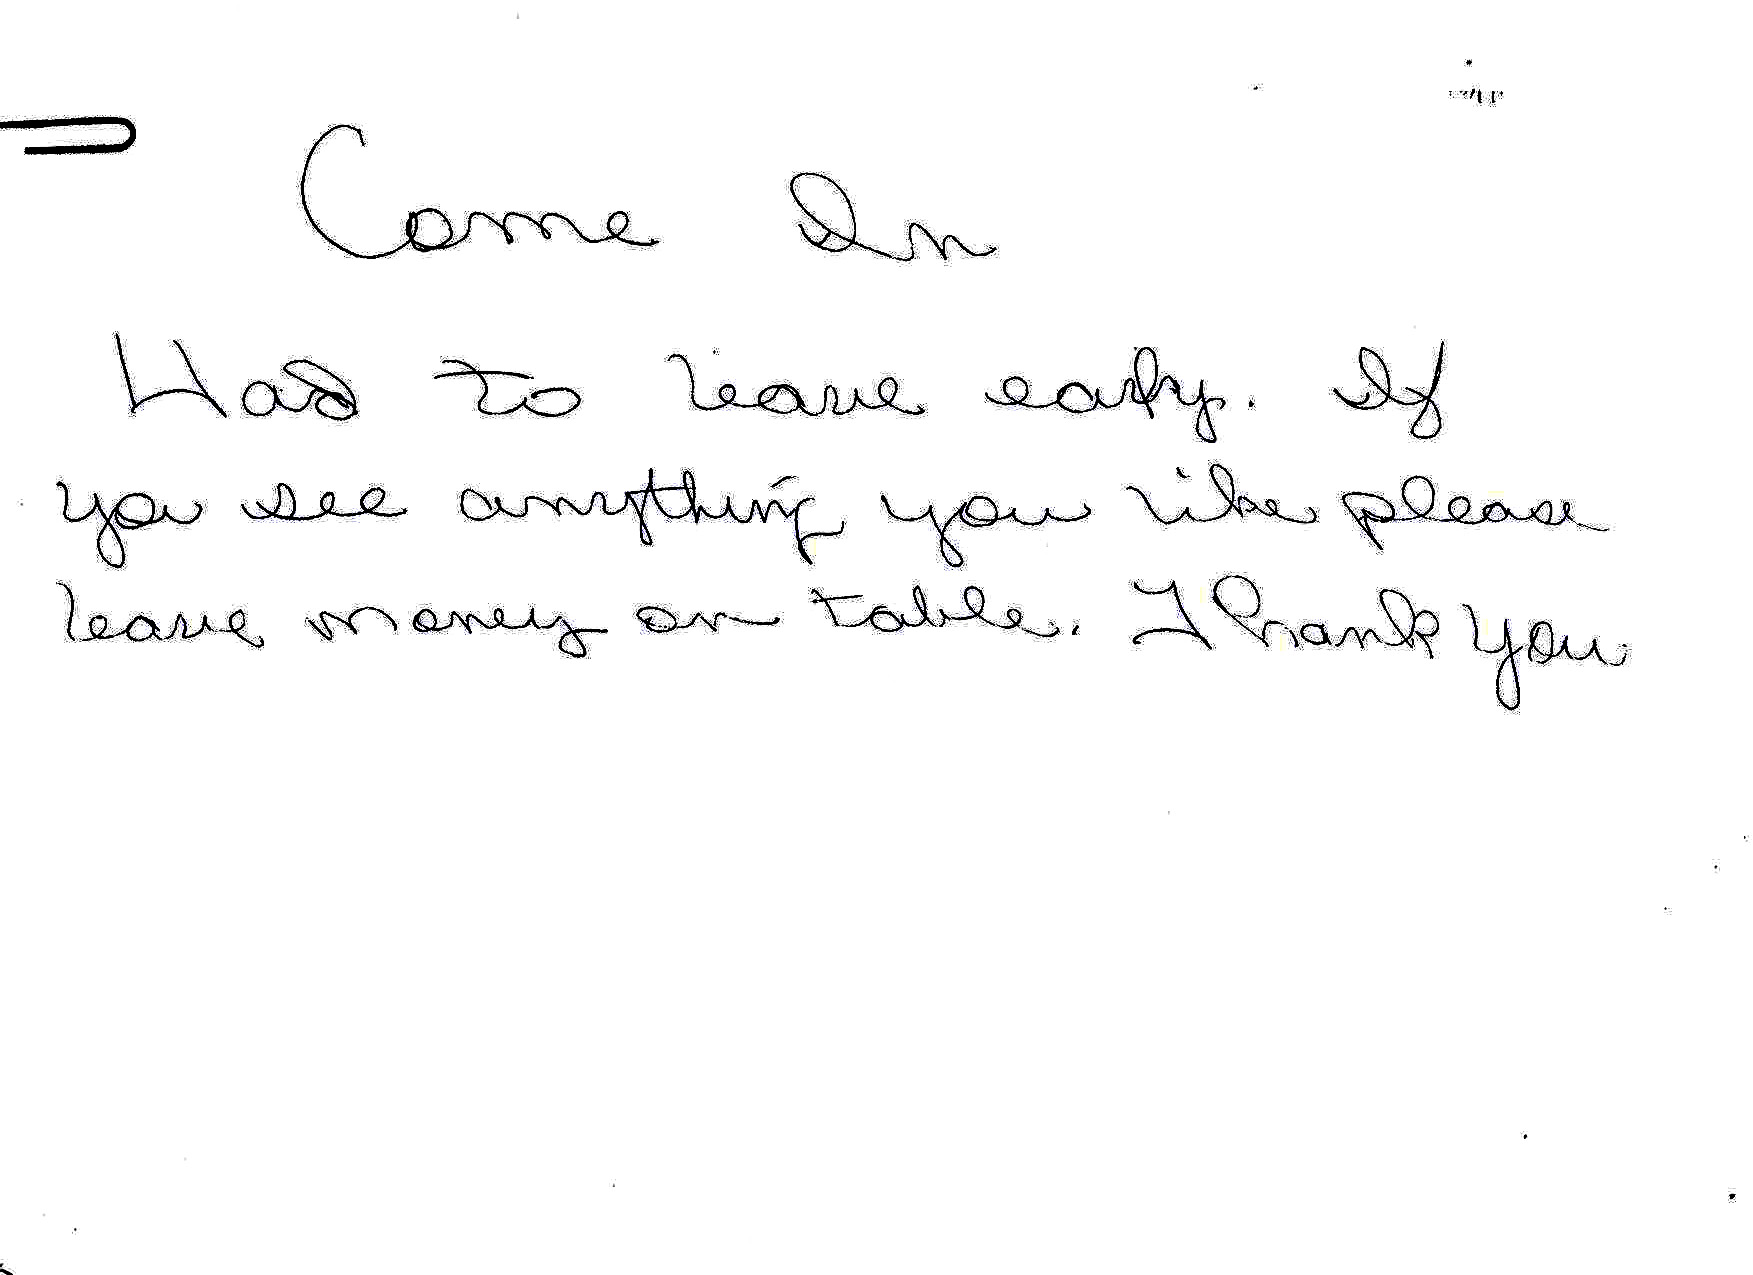 Come In
Had to leave early. If
you see anything you like please
leave money on table. Thank You